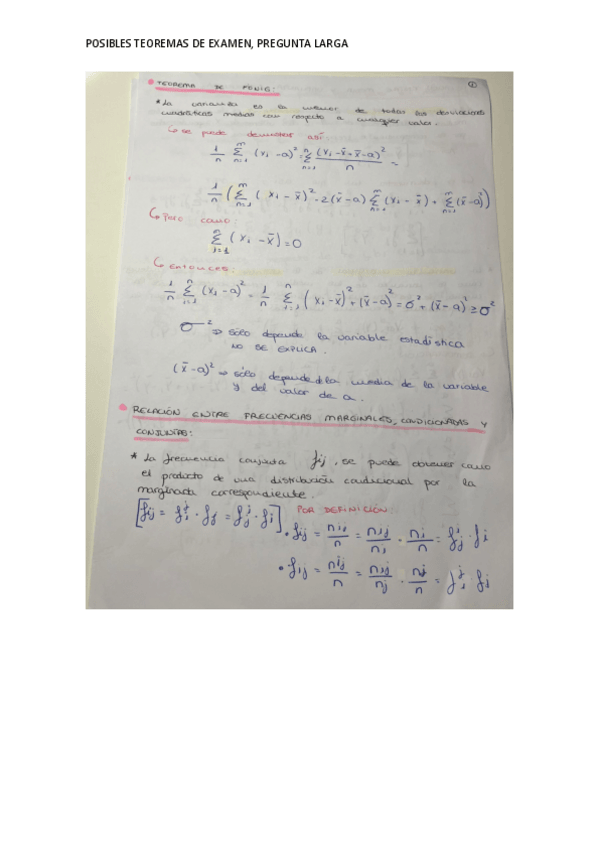 POSIBLES TEOREMAS DE EXAMEN, PREGUNTA LARGA
①
TEOREMA DE KÖNIG:
* La varianza es la menor de todas las desviaciones
cuadráticas medias con respecto a cualquier valor.
↳ se puede demostrar así:
1/n Σ (xᵢ - a)² = Σ (xᵢ - x̄ + x̄ - a)² / n =
1/n (Σ (xᵢ - x̄)² - 2(x̄ - a) Σ (xᵢ - x̄) + Σ (x̄ - a)²)
↳ Pero como:
Σ (xᵢ - x̄) = 0
↳ ENTONCES:
1/n Σ (xᵢ - a)² = 1/n Σ (xᵢ - x̄)² + (x̄ - a)² = σ² + (x̄ - a)² ≥ σ²
σ² ⇒ sólo depende la variable estadística
NO SE EXPLICA.
(x̄ - a)² ⇒ sólo depende de la media de la variable
y del valor de a.
RELACIÓN ENTRE FRECUENCIAS MARGINALES, CONDICIONADAS Y
CONJUNTAS:
* La frecuencia conjunta fij, se puede obtener como
el producto de una distribución condicional por la
marginada correspondiente.
[fij = fᵢʲ · fj = fⱼⁱ · fi]
POR DEFINICIÓN:
• fij = nij/n = nij/ni · ni/n = fⱼⁱ · fi
• fij = nij/n = nij/nj · nj/n = fᵢʲ · fj